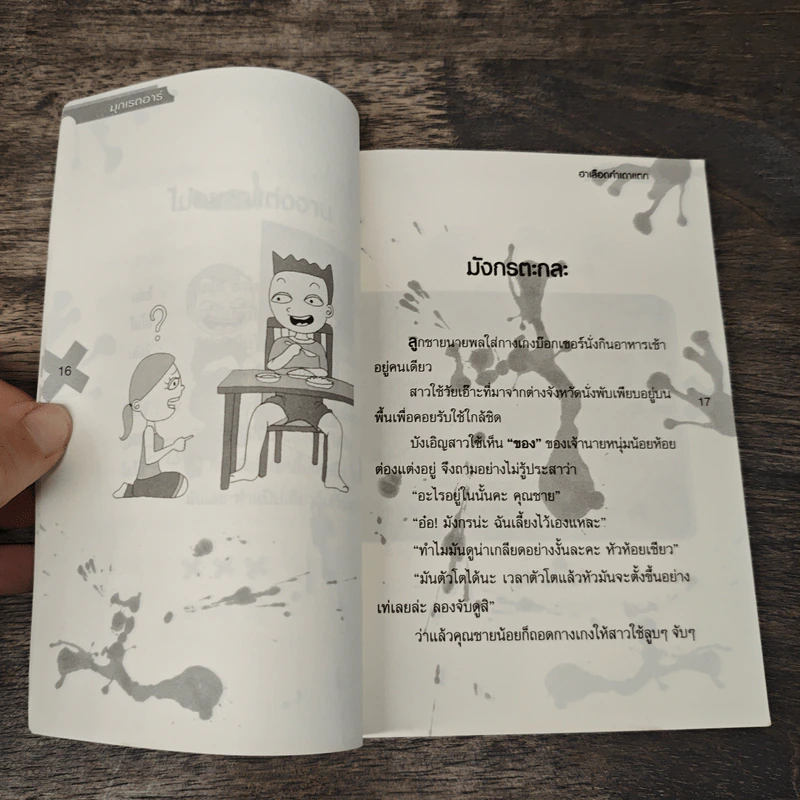 มุกเรตอาร์
ฮาเลือดกำเดาแตก
มังกรตะกละ
?
ลูกชายนายพลใส่กางเกงบ๊อกเซอร์นั่งกินอาหารเช้า
อยู่คนเดียว
สาวใช้วัยเอ๊าะที่มาจากต่างจังหวัดนั่งพับเพียบอยู่บน
พื้นเพื่อคอยรับใช้ใกล้ชิด
บังเอิญสาวใช้เห็น “ของ” ของเจ้านายหนุ่มน้อยห้อย
ต่องแต่งอยู่ จึงถามอย่างไม่รู้ประสาว่า
“อะไรอยู่ในนั้นคะ คุณชาย”
“อ๋อ! มังกรน่ะ ฉันเลี้ยงไว้เองแหละ”
“ทำไมมันดูน่าเกลียดอย่างงั้นละคะ หัวห้อยเชียว”
“มันตัวโตได้นะ เวลาตัวโตแล้วหัวมันจะตั้งขึ้นอย่าง
เท่เลยล่ะ ลองจับดูสิ”
ว่าแล้วคุณชายน้อยก็ถอดกางเกงให้สาวใช้ลูบๆ จับๆ
16
17